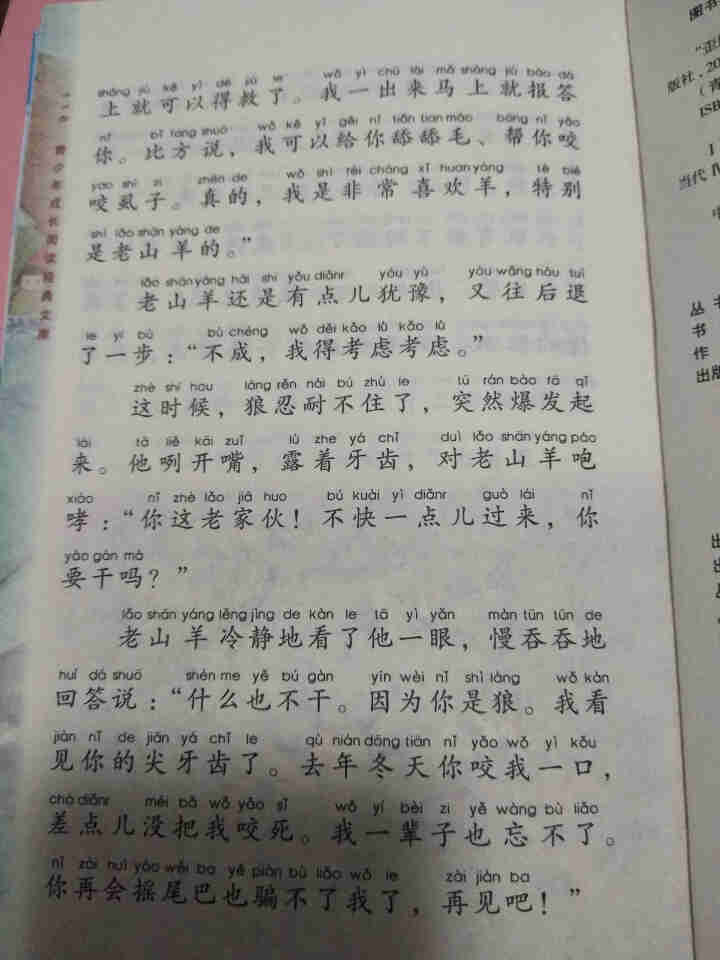 shàng jiù kě yǐ dé jiù le wǒ yì chū lái mǎ shàng jiù bào dá
上就可以得救了。我一出来马上就报答
nǐ bǐ fāng shuō wǒ kě yǐ gěi nǐ tiǎn tian máo bāng nǐ yǎo
你。比方说，我可以给你舔舔毛、帮你咬
yao shī zi zhēn de wǒ shì fēi cháng xǐ huan yáng tè bié
咬虱子。真的，我是非常喜欢羊，特别
shì lǎo shān yáng de
是老山羊的。”
lǎo shān yáng hái shi yǒu diǎnr yóu yù yòu wǎng hòu tuì
老山羊还是有点儿犹豫，又往后退
le yí bù bù chéng wǒ děi kǎo lǜ kǎo lǜ
了一步：“不成，我得考虑考虑。”
zhè shí hou láng rěn nài bú zhù le tū rán bào fā qǐ
这时候，狼忍耐不住了，突然爆发起
lái tā liě kāi zuǐ lù zhe yá chǐ duì lǎo shān yáng páo
来。他咧开嘴，露着牙齿，对老山羊咆
xiào nǐ zhè lǎo jiā huo bú kuài yì diǎnr guò lái nǐ
哮：“你这老家伙！不快一点儿过来，你
yào gàn má
要干吗？”
lǎo shān yáng lěng jìng de kàn le tā yì yǎn màn tūn tūn de
老山羊冷静地看了他一眼，慢吞吞地
huí dá shuō shén me yě bú gàn yīn wèi nǐ shì láng wǒ kàn
回答说：“什么也不干。因为你是狼。我看
jiàn nǐ de jiān yá chǐ le qù nián dōng tiān nǐ yǎo wǒ yì kǒu
见你的尖牙齿了。去年冬天你咬我一口，
chà diǎnr méi bǎ wǒ yǎo sǐ wǒ yí bèi zi yě wàng bù liǎo
差点儿没把我咬死。我一辈子也忘不了。
nǐ zài huì yáo wěi ba yě piàn bù liǎo wǒ le zài jiàn ba
你再会摇尾巴也骗不了我了，再见吧！”
青少年成长阅读经典文库
图书
版社，20
（青
ISB
当代
丛书
书
作
出版